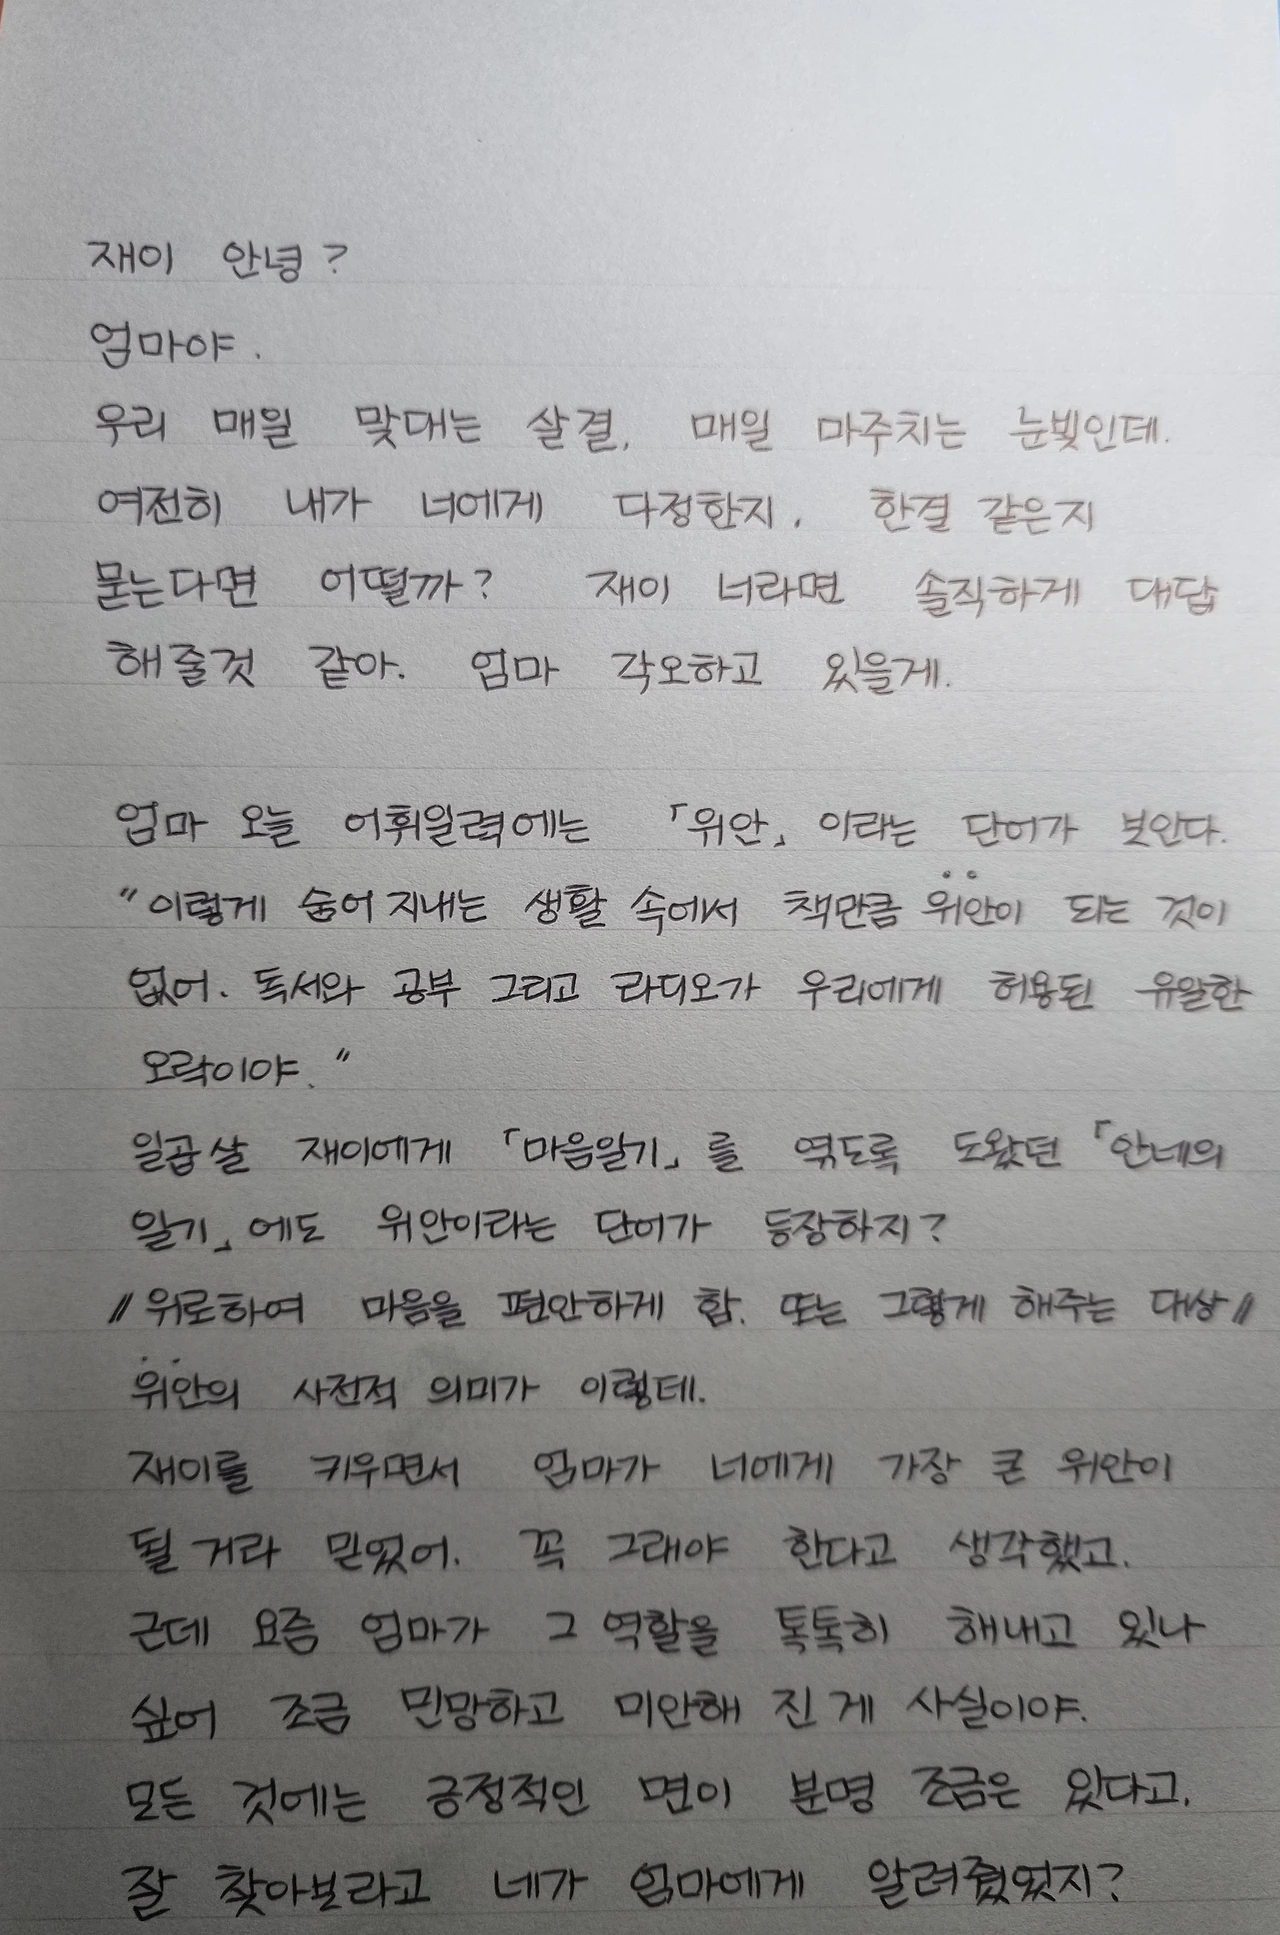 재이 안녕?
엄마야.
우리 매일 맞대는 살결, 매일 마주치는 눈빛인데.
여전히 내가 너에게 다정한지, 한결 같은지
묻는다면 어떨까? 재이 너라면 솔직하게 대답
해줄것 같아. 엄마 각오하고 있을게.
엄마 오늘 어휘일력에는 「위안」 이라는 단어가 보인다.
"이렇게 숨어 지내는 생활 속에서 책만큼 위안이 되는 것이
없어. 독서와 공부 그리고 라디오가 우리에게 허용된 유일한
오락이야."
일곱살 재이에게 「마음일기」를 엮도록 도왔던 「안네의
일기」에도 위안이라는 단어가 등장하지?
〃위로하여 마음을 편안하게 함. 또는 그렇게 해주는 대상〃
위안의 사전적 의미가 이렇데.
재이를 키우면서 엄마가 너에게 가장 큰 위안이
될 거라 믿었어. 꼭 그래야 한다고 생각했고.
근데 요즘 엄마가 그 역할을 톡톡히 해내고 있나
싶어 조금 민망하고 미안해 진 게 사실이야.
모든 것에는 긍정적인 면이 분명 조금은 있다고,
잘 찾아보라고 네가 엄마에게 알려줬었지?